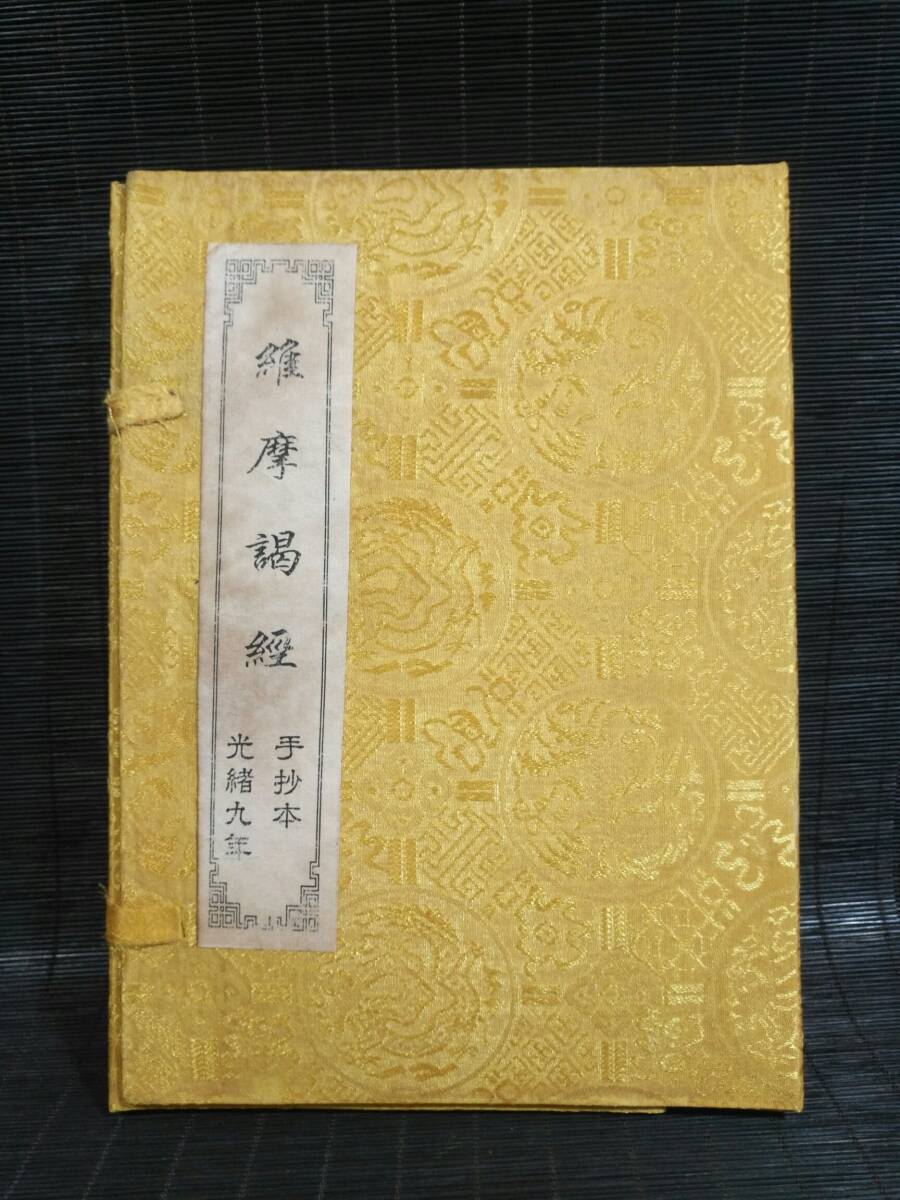 維摩謁經
手抄本
光緒九年